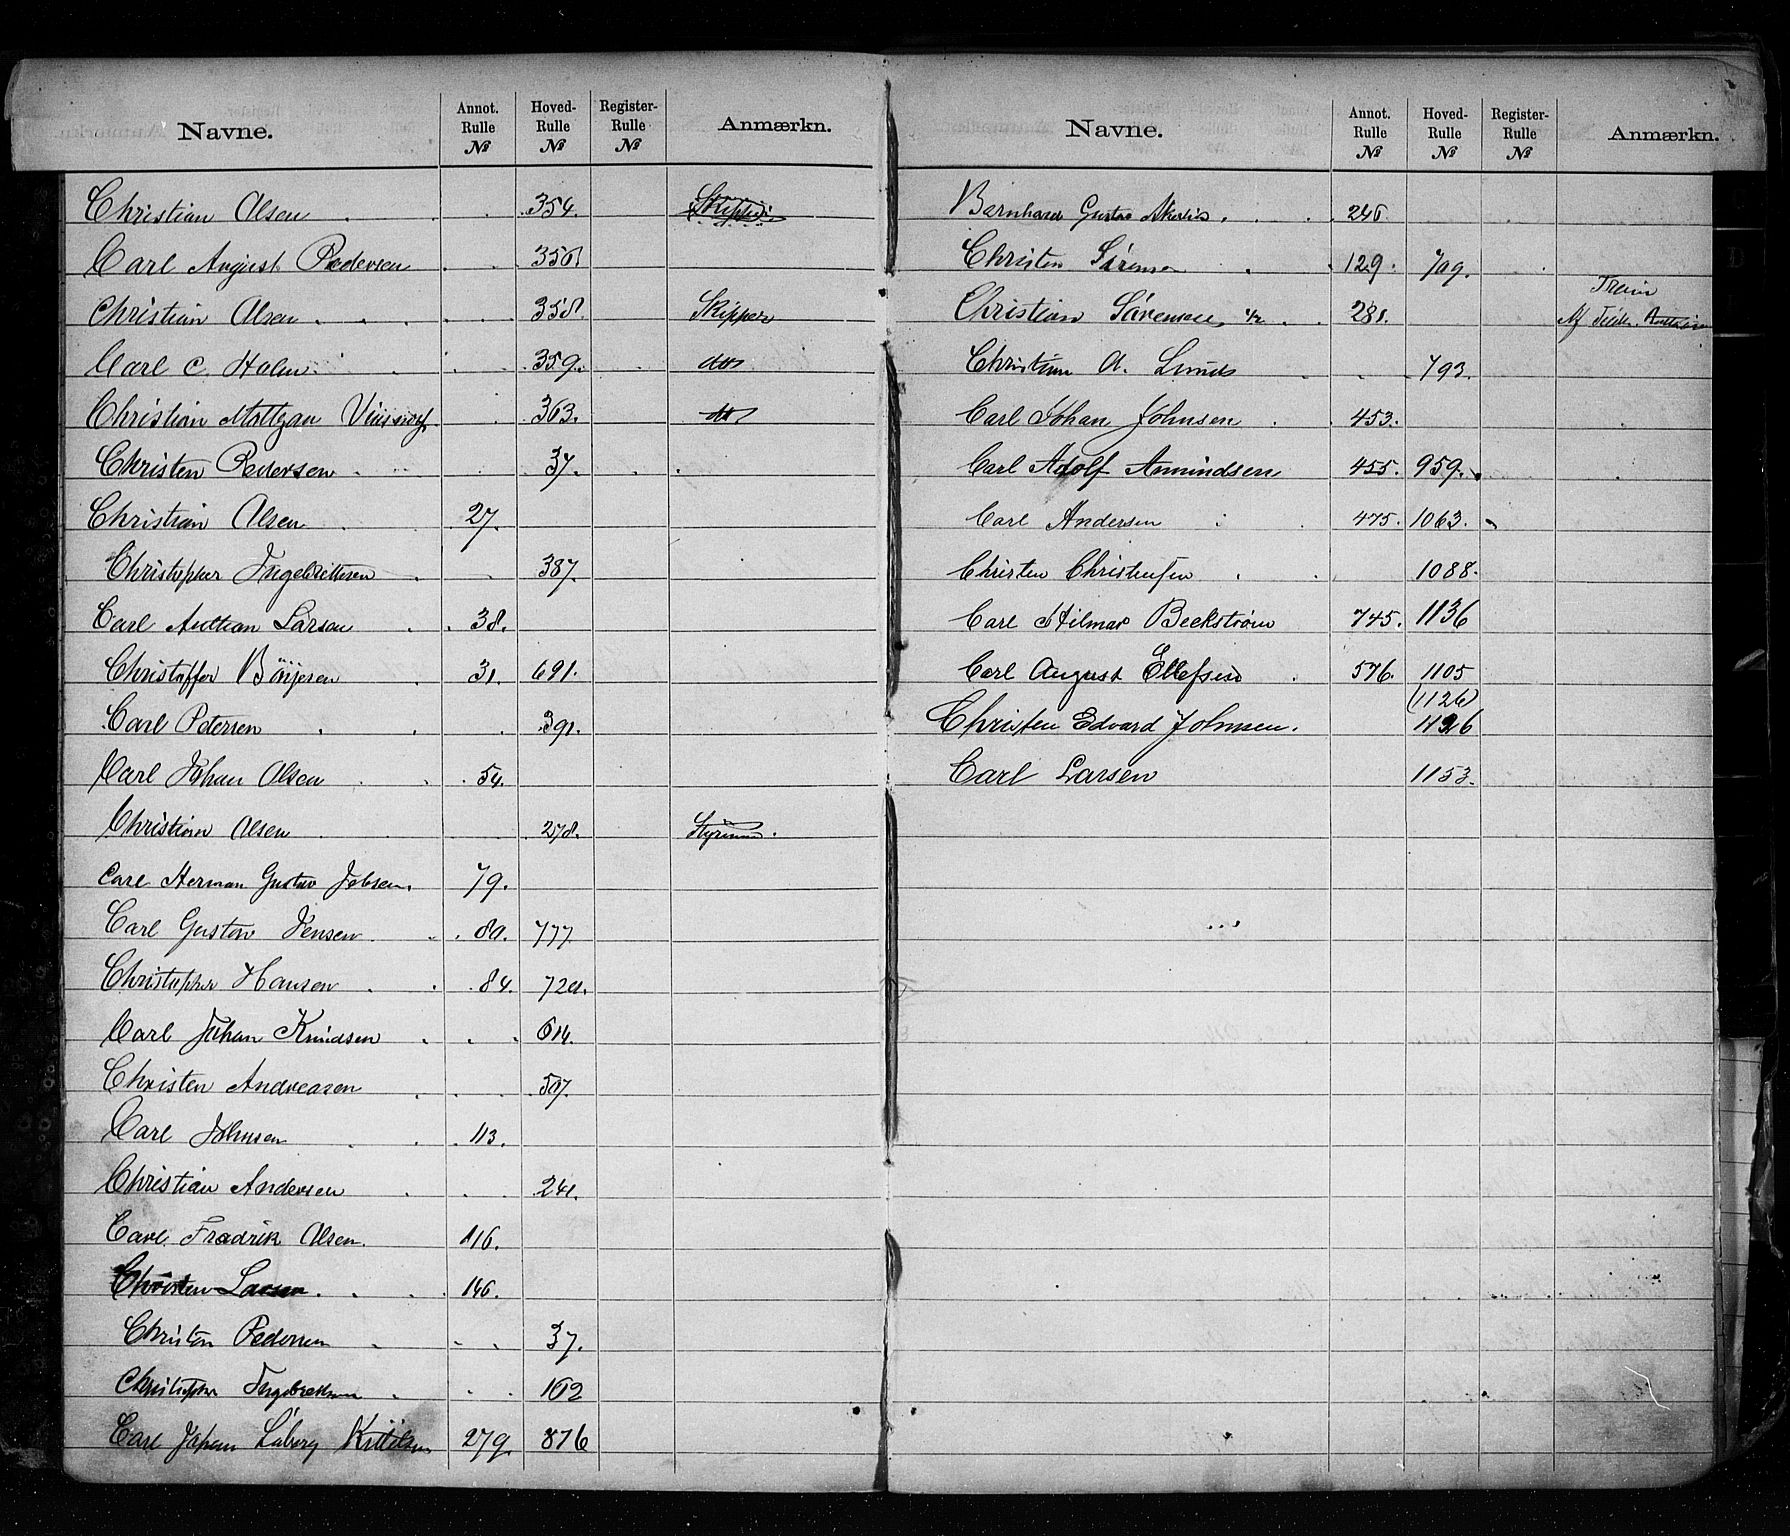 Navne. Annot. Rulle № Hoved-Rulle № Register-Rulle № Anmærkn.
Christian Olsen 354. Skipper
Carl August Pedersen 356
Christian Olsen 358. Skipper
Carl C. Holm 359. dto
Christian Mattzau 363. dto
Christen Pedersen 37.
Christian Olsen 27.
Christopher Ingebrettsen 387.
Carl Anthan Larsen 38.
Christoffer Börjesen 31. 691.
Carl Petersen 391.
Carl Johan Olsen 54.
Christian Olsen 278. Styrmm.
Carl Herman Gustav Jebsen. 79.
Carl Gustav Jensen 80. 777.
Christopher Hansen 84. 720.
Carl Johan Knudsen 614.
Christen Andreasen 507.
Carl Johnsen 113.
Christian Andersen 241.
Carl Fradrik Olsen. 116.
Christen Larsen. 146.
Christen Pedersen 37.
Christopher Ingebretsen 162
Carl Johan Låberg Kittilsen 279. 876
Navne. Annot. Rulle № Hoved-Rulle № Register-Rulle № Anmærkn.
Bernhard Gustav 246.
Christen Sörensen 129. 709.
Christian Sörensen 281. Af
Christian A. Lunds 793.
Carl Johan Johnsen 453.
Carl Adolf Amundsen 455. 959.
Carl Andersen 475. 1063.
Christen Christensen 1088.
Carl Hilmar Beckström 745. 1136
Carl August Ellefsen 576. 1105
(1126)
Christen Edvard Johnsen. 1126
Carl Larsen 1153.